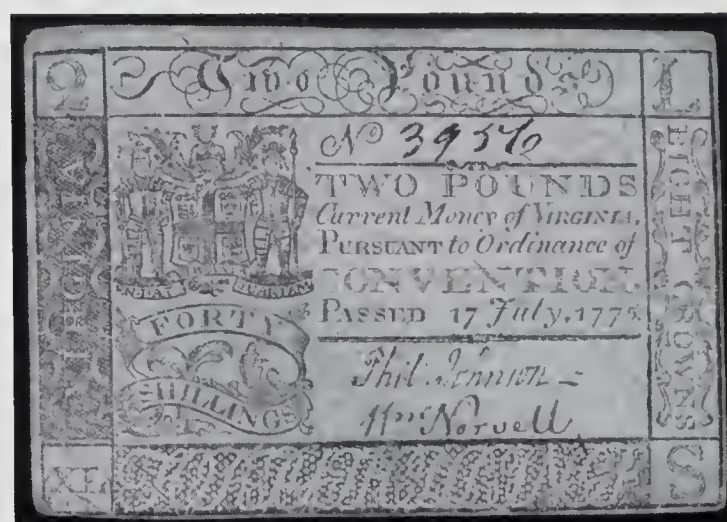 2 Two Pounds L
VIRGINIA
No 3956
TWO POUNDS
Current Money of VIRGINIA,
PURSUANT to Ordinance of
CONVENTION,
PASSED 17 July, 1775.
Phil Johnson
Wm Norvell
EN DAT VIRGINIAM
FORTY
SHILLINGS
EIGHT CROWNS
XL S